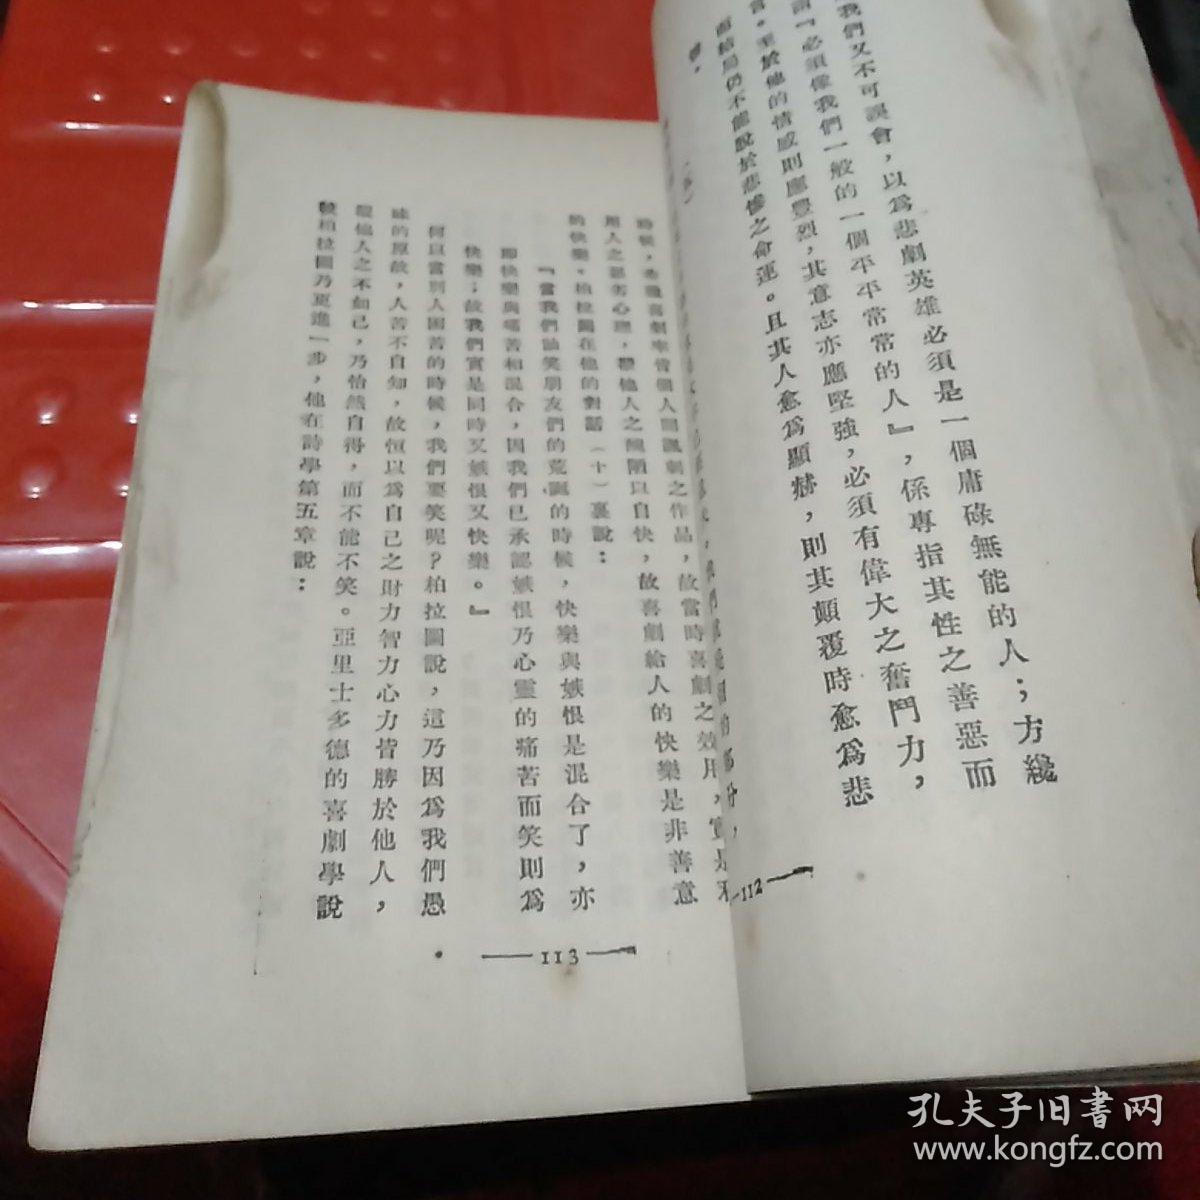 我們又不可誤會，以爲悲劇英雄必須是一個庸碌無能的人；方纔
『必須像我們一般的一個平平常常的人』，係專指其性之善惡而
至於他的情感則應豐烈，其意志亦應堅強，必須有偉大之奮鬥力，
而結局仍不能脫於悲慘之命運。且其人愈爲顯赫，則其顛覆時愈爲悲
—112—
時候，希臘喜劇率皆個人間諷刺之作品，故當時喜劇之效用，實是
用人之惡劣心理，聽他人之醜陋以自快，故喜劇給人的快樂是非善意
的快樂。柏拉圖在他的對話（十）裏說：
『當我們訕笑朋友們的荒誕的時候，快樂與嫉恨是混合了，亦
即快樂與痛苦相混合，因我們已承認嫉恨乃心靈的痛苦而笑則爲
快樂；故我們實是同時又嫉恨又快樂。』
何以當別人困苦的時候，我們要笑呢？柏拉圖說，這乃因爲我們愚
昧的原故，人苦不自知，故恒以爲自己之財力智力心力皆勝於他人，
他人之不如己，乃怡然自得，而不能不笑。亞里士多德的喜劇學說
較柏拉圖乃更進一步，他在詩學第五章說：
—113—
孔夫子旧書网
www.kongfz.com